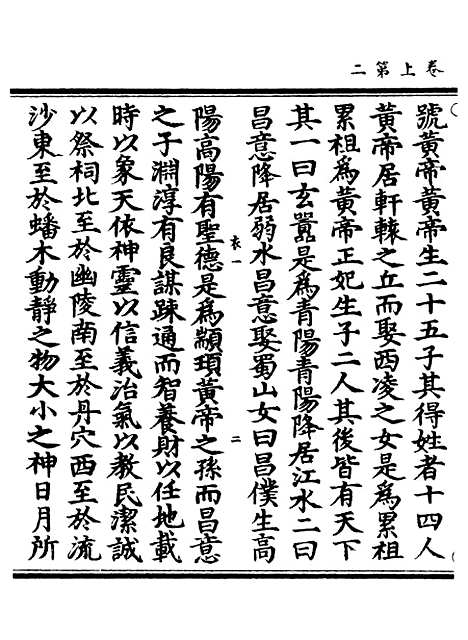 卷上第二
號黃帝黃帝生二十五子其得姓者十四人
黃帝居軒轅之丘而娶西凌之女是爲累祖
累祖爲黃帝正妃生子二人其後皆有天下
其一曰玄囂是爲青陽青陽降居江水二曰
昌意降居弱水昌意娶蜀山女曰昌僕生高
二
陽高陽有聖德是爲顓頊黃帝之孫而昌意
之子淵淳有良謀踈通而智養財以任地載
時以象天依神靈以信義治氣以教民潔誠
以祭祠北至於幽陵南至於丹穴西至於流
沙東至於蟠木動靜之物大小之神日月所